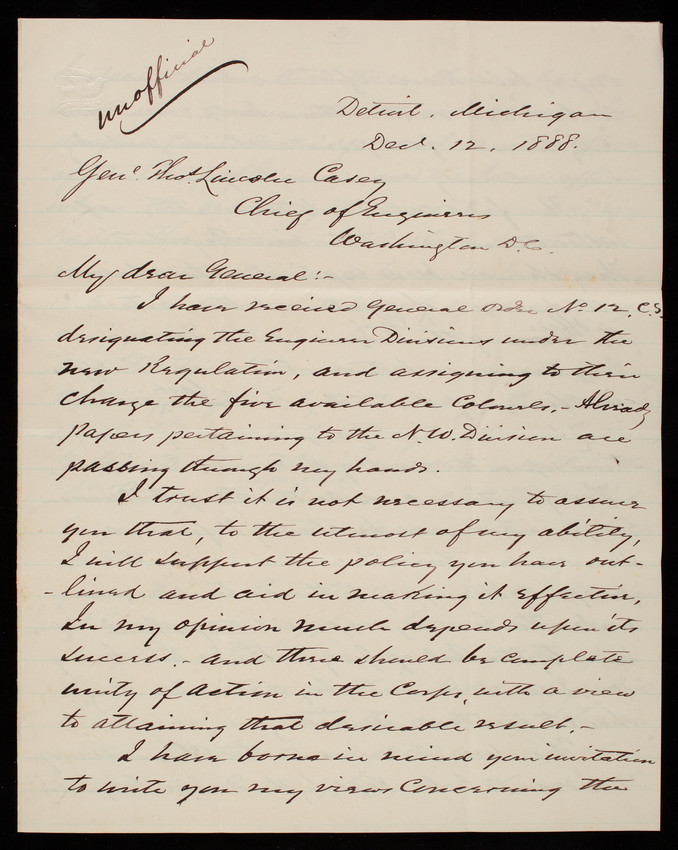 unofficial
Detroit, Michigan
Dec. 12, 1888.
Genl. Thos. Lincoln Casey
Chief of Engineers
Washington D.C.
My dear General:-
I have received General order No. 12, C.S.
designating the Engineer Divisions under the
new Regulation, and assigning to their
charge the five available Colonels.- Already
papers pertaining to the N.W. Division are
passing through my hands.
I trust it is not necessary to assure
you that, to the utmost of my ability,
I will support the policy you have out-
-lined and aid in making it effective,
In my opinion much depends upon its
success.- and there should be complete
unity of action in the Corps, with a view
to attaining that desirable result.-
I have borne in mind your invitation
to write you my views concerning the